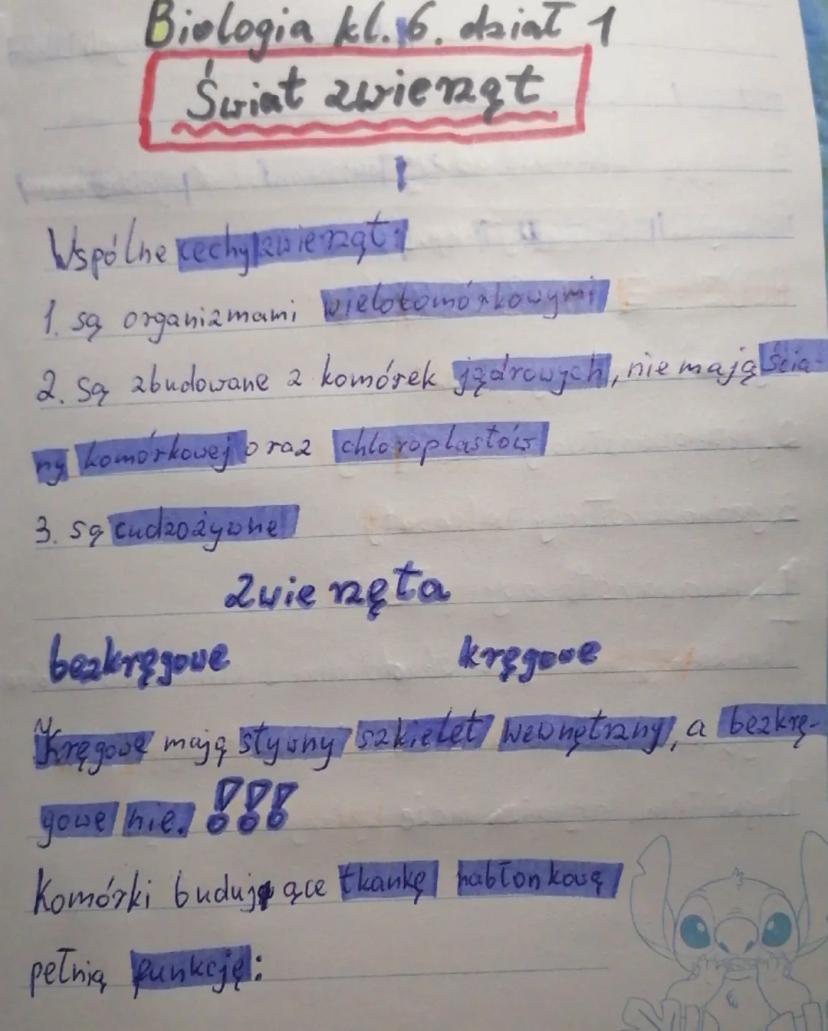 Biologia kl. 6. dział 1
Świat zwierząt
Wspólne cechy zwierząt:
1. są organizmami wielokomórkowymi
2. są zbudowane z komórek jądrowych, nie mają ścia-
ny komórkowej oraz chloroplastów
3. są cudzożywne
Zwierzęta
bezkręgowe kręgowe
Kręgowe mają stywny szkielet wewnętrzny, a bezkrę-
gowe nie. !!!
Komórki budujące tkankę nabłonkową
pełnią funkcję: